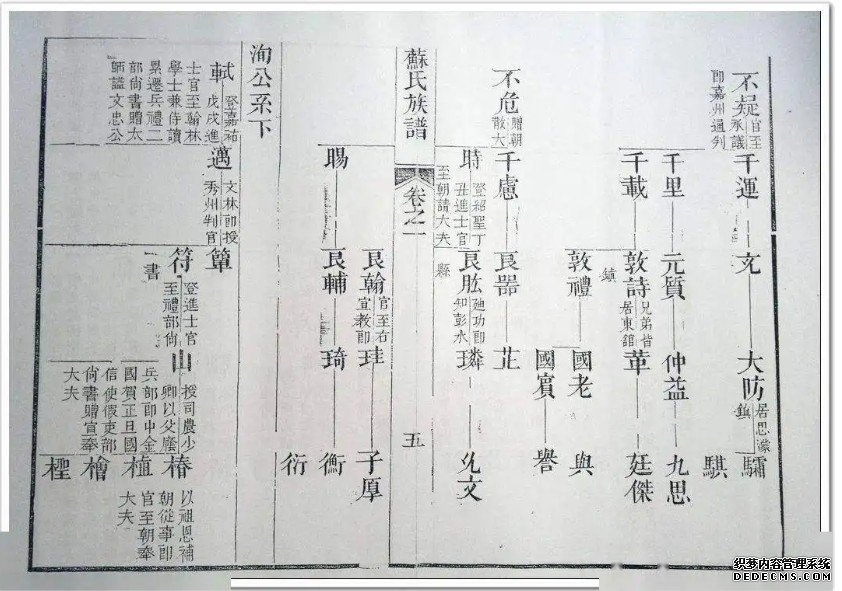 不疑
官至
承議
郎嘉州通判
千運
文
大昉
居思濛
鎮
驌
騏
千里
元質
仲益
九思
千載
敦詩
兄弟皆
居東館
鎮
華
廷傑
敦禮
國老
與
國賓
譽
不危
贈朝
散大
千慮
良器
芷
時
登紹聖丁
丑進士官
至朝請大夫
良肱
迪功郎
知彭水
縣
璘
允文
蘇氏族譜
卷之一
五
賜
良翰
官至右
宣教郎
珪
子厚
良輔
琦
衡
衍
洵公系下
軾
登嘉祐
戊戌進
士官至翰林
學士兼侍讀
累遷兵禮二
部尚書贈太
師謚文忠公
邁
文林郎授
秀州判官
簞
符
登進士官
至禮部尚
書
山
授司農少
卿以父廕
兵部郎中金
國賀正旦國
信使假吏部
尚書贈宣奉
大夫
椿
以祖恩補
朝從事郎
官至朝奉
大夫
植
檜
檉
织梦内容管理系统
DEDECMS.COM